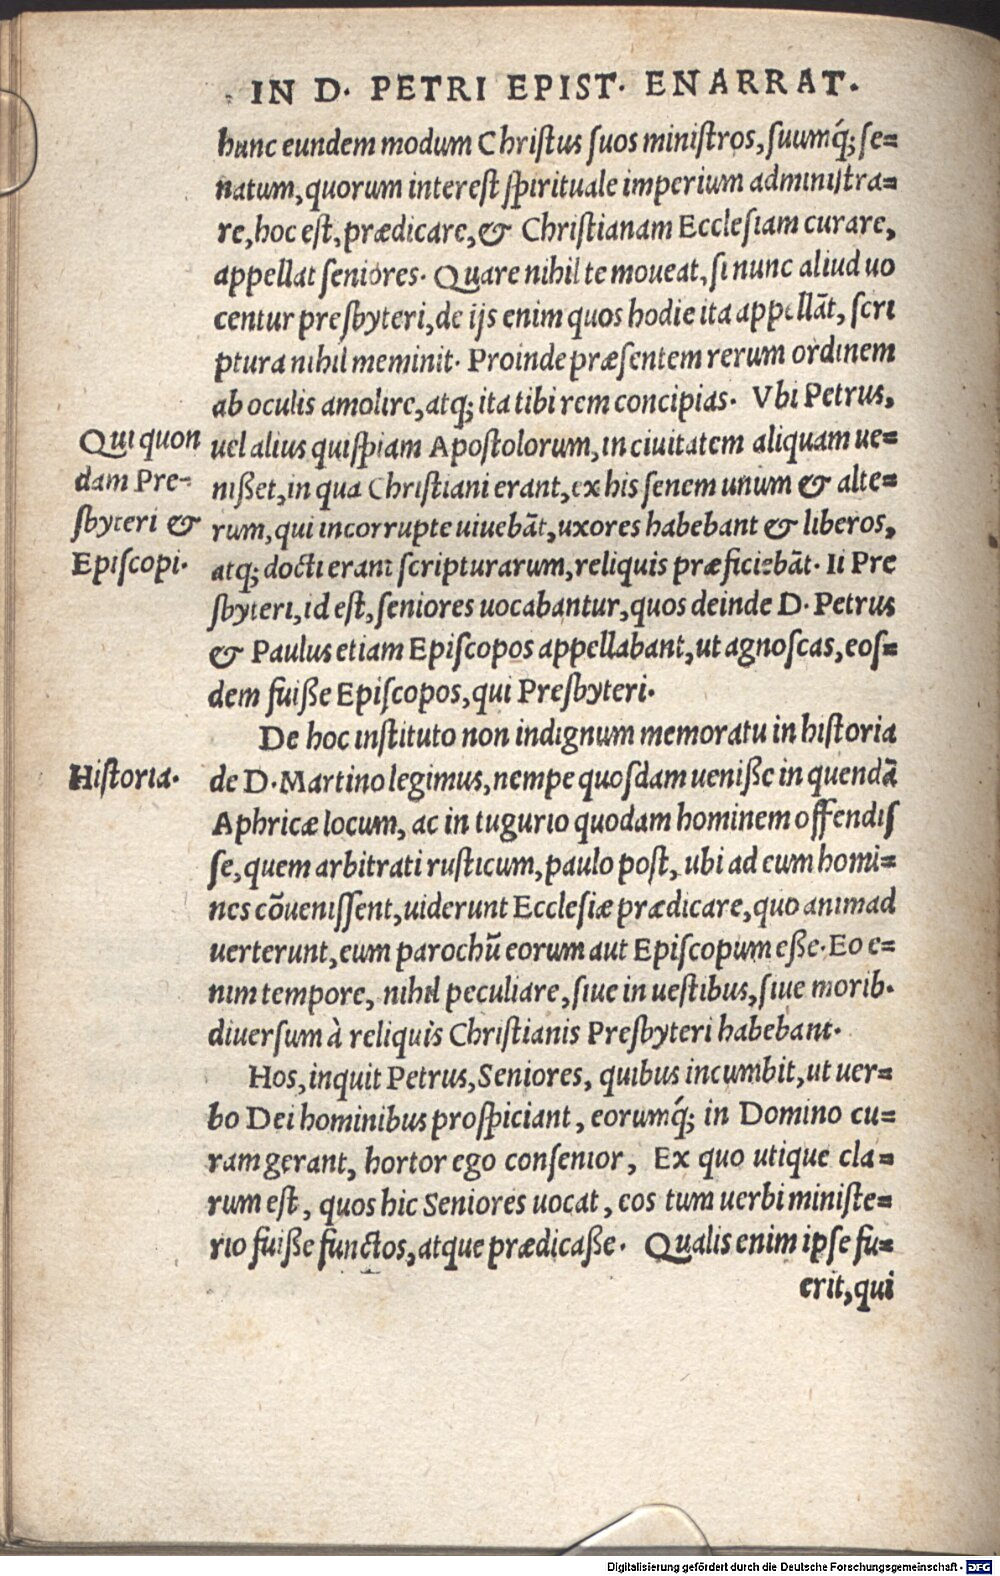 IN D. PETRI EPIST. ENARRAT.
hunc eundem modum Christus suos ministros, suumq́; se=
natum, quorum interest spirituale imperium administra=
re, hoc est, prædicare, & Christianam Ecclesiam curare,
appellat seniores. Quare nihil te moveat, si nunc aliud uo
centur presbyteri, de ijs enim quos hodie ita appellāt, scri
ptura nihil meminit. Proinde præsentem rerum ordinem
ab oculis amolire, atq; ita tibi rem concipias. Vbi Petrus,
uel alius quispiam Apostolorum, in ciuitatem aliquam ue=
nißet, in qua Christiani erant, ex his senem unum & alte=
rum, qui incorrupte uiuebāt, uxores habebant & liberos,
atq; docti erant scripturarum, reliquis præficiebāt. Ii Pre
sbyteri, id est, seniores uocabantur, quos deinde D. Petrus
& Paulus etiam Episcopos appellabant, ut agnoscas, eos=
dem fuiße Episcopos, qui Presbyteri.
Qui quon
dam Pre-
sbyteri &
Episcopi.
De hoc instituto non indignum memoratu in historia
de D. Martino legimus, nempe quosdam ueniße in quendā
Aphricæ locum, ac in tugurio quodam hominem offendis
se, quem arbitrati rusticum, paulo post, ubi ad eum homi=
nes cōuenissent, uiderunt Ecclesiæ prædicare, quo animad
uerterunt, eum parochū eorum aut Episcopum eße. Eo e=
nim tempore, nihil peculiare, siue in uestibus, siue morib.
diuersum à reliquis Christianis Presbyteri habebant.
Historia.
Hos, inquit Petrus, Seniores, quibus incumbit, ut uer=
bo Dei hominibus prospiciant, eorumq́; in Domino cu=
ram gerant, hortor ego consenior, Ex quo utique cla=
rum est, quos hic Seniores uocat, eos tum uerbi ministe=
rio fuiße functos, atque prædicaße. Qualis enim ipse fu=
erit, qui
Digitalisierung gefördert durch die Deutsche Forschungsgemeinschaft - DFG